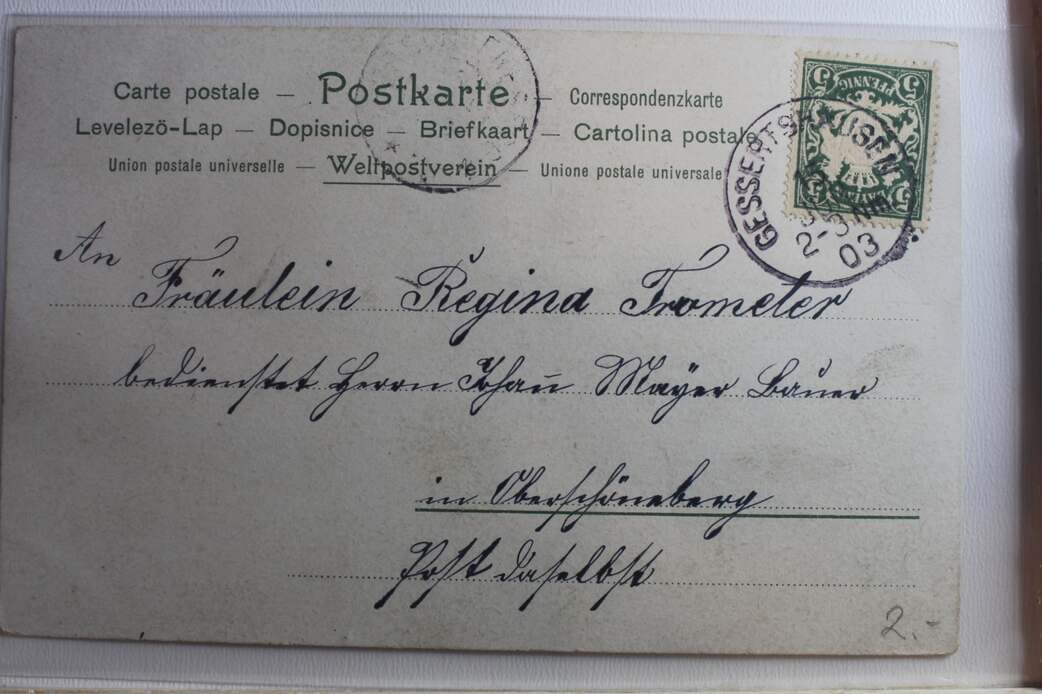 Carte postale — Postkarte — Correspondenzkarte
Levelező-Lap — Dopisnice — Briefkaart — Cartolina postale
Union postale universelle — Weltpostverein — Unione postale universale
5 PFENNIG 5
5 BAYERN 5
GESSERTSHAUSEN
2-3 NM
03
An
Fräulein Regina Trometer
bedienstet Herrn Johann Mayer Bauer
in Oberschöneberg
Post daselbst
2.-